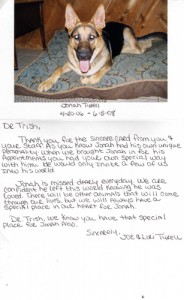 Jonah Tuell
Dr. Trish,
Thank you for the sincere care from you &
your staff. As you know Jonah had his own unique
personality. When we brought Jonah in for his
appointments you had your own special way
with him. We could only invite a few of us
into his world.
Jonah is missed dearly everyday. We are
confident he left this world knowing he was
loved. There will be other animals that will come
through our lives, but we will always have a
special place in our heart for Jonah.
Dr. Trish, we know you have that special
place for Jonah also.
Sincerely,
Joe & Lori Tuell